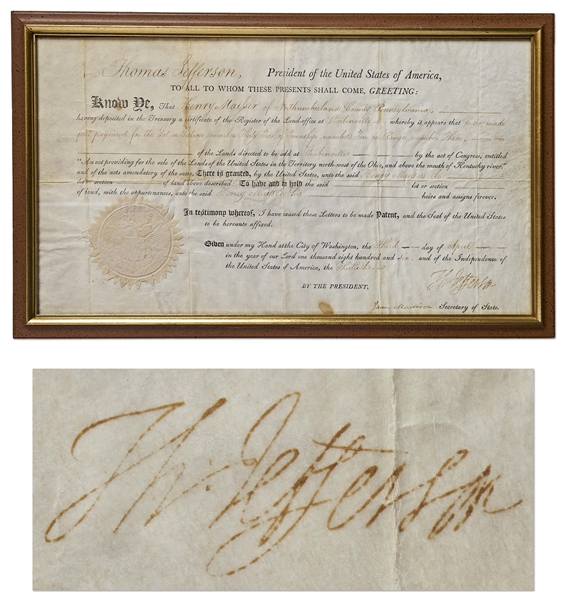 Thomas Jefferson, President of the United States of America,
TO ALL TO WHOM THESE PRESENTS SHALL COME, GREETING:
Know Ye, That Henry Maiser of Northumberland County Pennsylvania
having deposited in the Treasury a certificate of the Register of the Land-office at Steubenville whereby it appears that made
payment for the Township number in Range number
of the Lands directed to be sold at Steubenville by the act of Congress, entitled
"An act providing for the sale of the Lands of the United States in the Territory north-west of the Ohio, and above the mouth of Kentucky river,"
and of the acts amendatory of the same, There is granted, by the United States, unto the said Henry lot or
section of land above described To have and to hold the said lot or section
of land, with the appurtenances, unto the said Henry his heirs and assigns forever.
In testimony whereof, I have caused these Letters to be made Patent, and the Seal of the United States
to be hereunto affixed.
Given under my Hand at the City of Washington, the third day of April
in the year of our Lord one thousand eight hundred and six and of the Independence of
the United States of America, the
BY THE PRESIDENT,
Th: Jefferson
James Madison Secretary of State.
Th: Jefferson